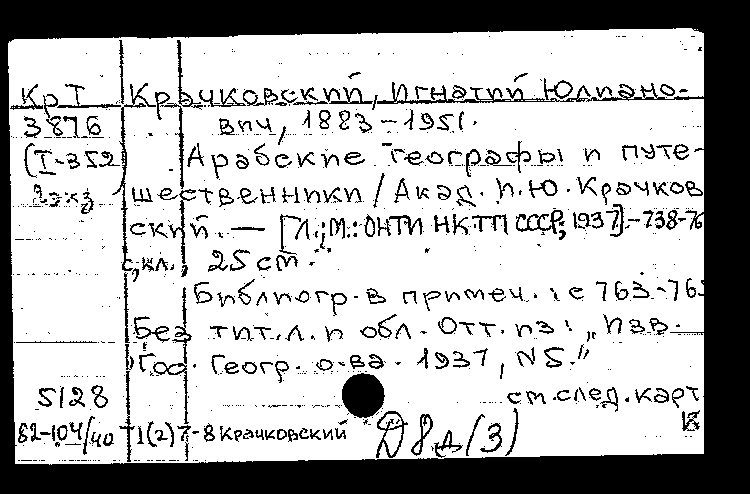 КрТ Крачковский, Игнатий Юлиано-
3876 вич, 1883-1951.
(I-352) Арабские географы и путе-
2экз шественники / Акад. И.Ю. Крачков
ский. — [Л.; М.: ОНТИ НКТП СССР, 1937]. - 738-76
с, кл., 25 см.
Библиогр. в примеч.: с 763-765
Без тит. л. и обл. Отт. из: „Изв.
Гос. Геогр. о-ва. 1937, N5."
5128 см. след. карт
82-104/40 Т1(2)7-8 Крачковский Д8д(3)